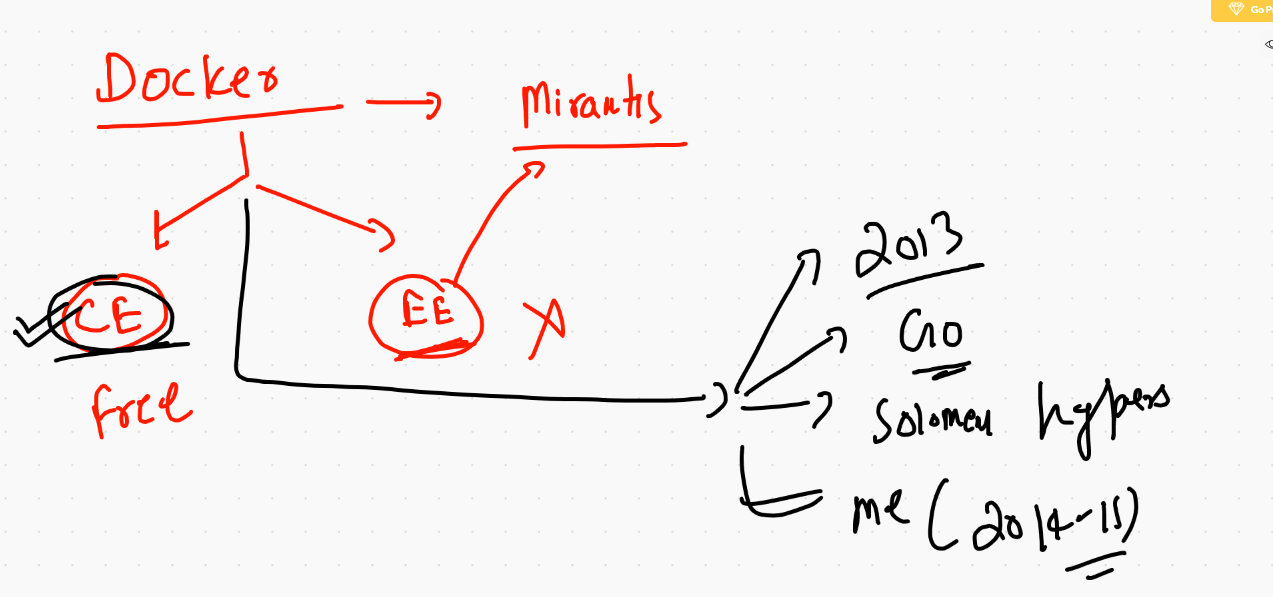 Go P
Docker
Mirantis
CE
EE
free
2013
Go
Solomen hypers
me (2014-15)